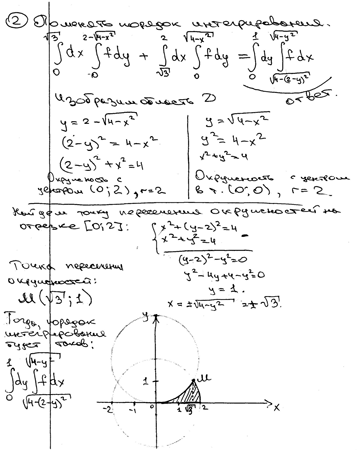 ② Поменять порядок интегрирования.
∫₀^√3 dx ∫₀^(2-√(4-x²)) f dy + ∫_√3^2 dx ∫₀^√(4-x²) f dy = ∫₀¹ dy ∫_√(4-(2-y)²)^√(4-y²) f dx
ответ.
Изобразим область D
y = 2 - √(4-x²)
(2-y)² = 4-x²
(2-y)² + x² = 4
Окружность с
центром (0;2), r=2
y = √(4-x²)
y² = 4-x²
x²+y²=4
Окружность с центром
в т. (0;0), r=2.
Найдем точку пересечения окружностей на
отрезке [0;2]:
x²+(y-2)²=4
x²+y²=4
(y-2)²-y²=0
y²-4y+4-y²=0
y=1.
x=±√(4-y²) =±√3.
Точка пересечения
окружностей:
M(√3;1)
Тогда, порядок
интегрирования
будет таков:
∫₀¹ dy ∫_√(4-(2-y)²)^√(4-y²) f dx
y
1
M
-2 -1 0 1 √3 2 x